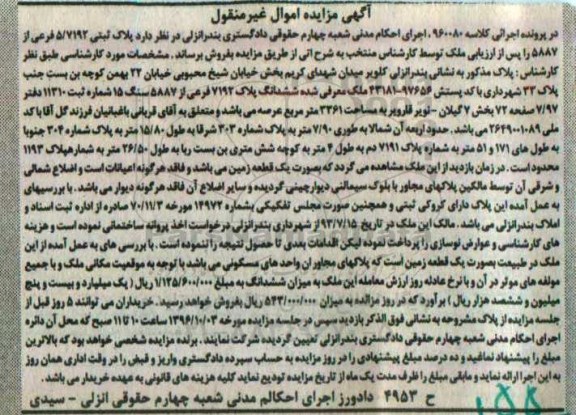 آگهی مزایده اموال غیرمنقول
در پرونده اجرائی کلاسه ۹۶۰۰۸۰ . اجرای احکام مدنی شعبه چهارم حقوقی دادگستری بندرانزلی در نظر دارد پلاک ثبتی ۵/۷۱۹۲ فرعی از
۵۸۸۷ را پس از ارزیابی ملک توسط کارشناس منتخب به شرح اتی از طریق مزایده بفروش برساند . مشخصات مورد کارشناسی طبق نظر
کارشناس : پلاک مذکور به نشانی بندرانزلی کلویر میدان شهدای کریم بخش خیابان شیخ محبوبی خیابان ۲۲ بهمن کوچه بن بست جنب
پلاک ۳۳ شهرداری با کد پستی ۹۷۶۵۶-۴۳۱۸۱ ملک معرفی شده ششدانگ پلاک ۷۱۹۲ فرعی از ۵۸۸۷ سنگ ۱۵ شماره ثبت ۱۱۳۱۰ دفتر
۷/۹۷ صفحه ۷۲ بخش ۷ گیلان - تویر قلرویر به مساحت ۳۳۶۱ متر مربع عرصه می باشد و متعلق به آقای قربانی باغبانیان فرزند گل آقا با کد
ملی ۲۶۴۹۰۰۱۰۸۹ می باشد . حدود اربعه آن شمالا به طوری ۷/۹۰ متر به پلاک شماره ۳۰۳ شرقا به طول ۱۵/۸۰ متر به پلاک شماره ۳۰۴ جنوبا
به طول های ۱۷۱ و ۵۱ متر به شماره پلاک ۷۱۹۱ دم به طول ۴ متر به کوچه شش متری بن بست ربا به طول ۲۶/۵۰ متر به شماره پلاک ۱۱۹۳
محدود است . در زمان بازدید از این ملک مشاهده می گردد که بصورت یک قطعه زمین می باشد و فاقد هرگونه اعیانات است و اضلاع شمالی
و شرقی آن توسط مالکین پلاکهای مجاور با بلوک سیمانتی دیوارچینی گردیده و سایر اضلاع آن فاقد هرگونه دیوار می باشد . با بررسیهای
به عمل آمده این پلاک دارای کروکی ثبتی و همچنین صورت مجلس تفکیکی بشماره ۱۴۹۷۲ مورخه ۷۰/۱۱/۳ صادره از اداره ثبت اسناد و
املاک بندرانزلی می باشد . مالک این ملک در تاریخ ۹۳/۷/۱۵ از شهرداری بندرانزلی درخواست اخذ پروانه ساختمانی نموده است و هزینه
های کارشناسی و عوارض نوسازی را پرداخت نموده لیکن اقدامات بعدی تا حصول نتیجه را ننموده است . با بررسی های به عمل آمده از این
ملک در طبیعت بصورت یک قطعه زمین است که پلاکهای مجاور ان واحد های مسکونی می باشد با توجه به موقعیت مکانی ملک و با جمیع
مولفه های موثر در آن و با نرخ عادله روز ارزش معامله این ملک به میزان ششدانگ به مبلغ ۱/۱۲۵/۶۰۰/۰۰۰ ریال ( یک میلیارد و بیست و پنج
میلیون و ششصد هزار ریال ) برآورد که در روز مزایده به میزان ۵۴۳/۰۰۰/۰۰۰ ریال بفروش خواهد رسید . خریداران می توانند ۵ روز قبل از
جلسه مزایده از پلاک مشروحه به نشانی فوق الذکر بازدید سپس در جلسه مزایده مورخه ۱۳۹۶/۱۰/۰۳ ساعت ۱۰ تا ۱۱ صبح که محل آن دائره
اجرای احکام مدنی شعبه چهارم حقوقی دادگستری بندرانزلی تعیین گردیده شرکت نمایند . برنده مزایده شخصی خواهد بود که بالاترین
مبلغ را پیشنهاد نمایید و ده درصد مبلغ پیشنهادی را در روز مزایده به حساب سپرده دادگستری واریز و قبض را در وقت اداری همان روز
به این اجرا ارائه نماید و مابقی مبلغ را ظرف مدت یک ماه از تاریخ مزایده تودیع نماید کلیه هزینه های قانونی به عهده خریدار می باشد .
ح ۴۹۵۳ دادورز اجرای احکام مدنی شعبه چهارم حقوقی انزلی – سیدی